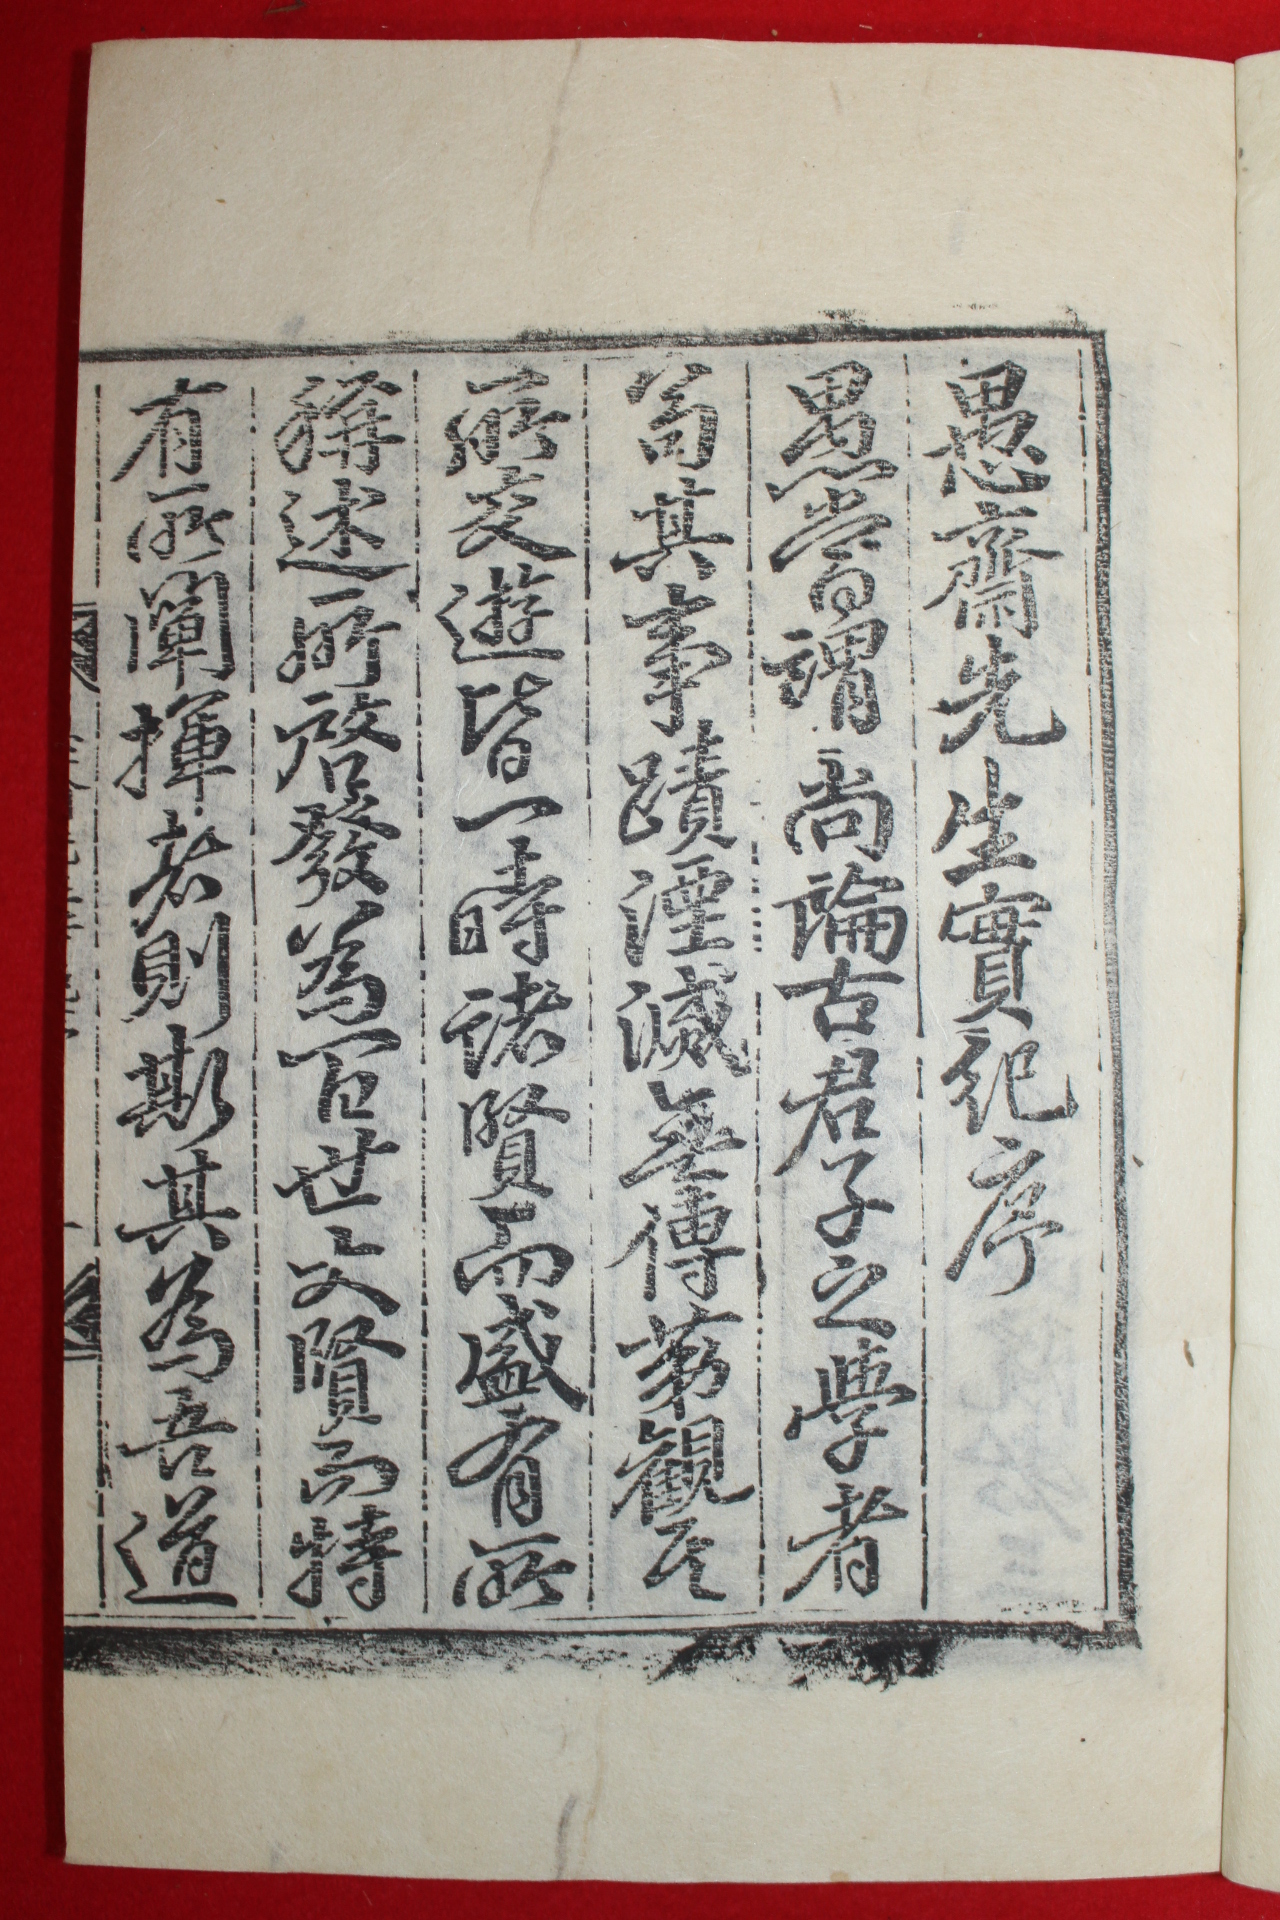 愚齋先生實紀序
愚嘗謂尚論古君子之學者
苟其事蹟湮滅無傳苐觀其
所交遊皆一時諸賢而盛有所
稱述所啓發爲百世上大賢而特
有所闡揮者則斯其爲吾道